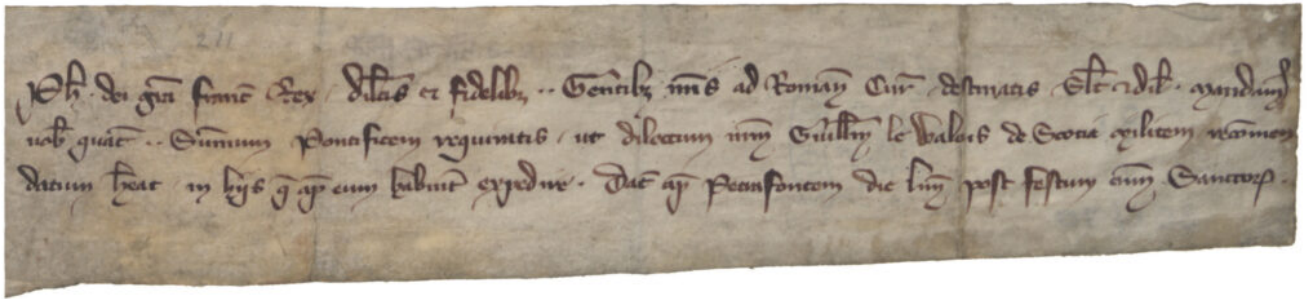 211
Ph. dei gra Franc Rex dilcis et fidelib; .. Gentib; nris ad Romam Cur destinatis Salt & dil. Mandam
vob quat .. Summum Pontificem requiratis ut dilectum nrm Guillm le Walois de Scocia militem recomen
datum heat in hiis q ap eum habuit expedire. Dat ap Petrafontem die lun post festum omm Sanctor.